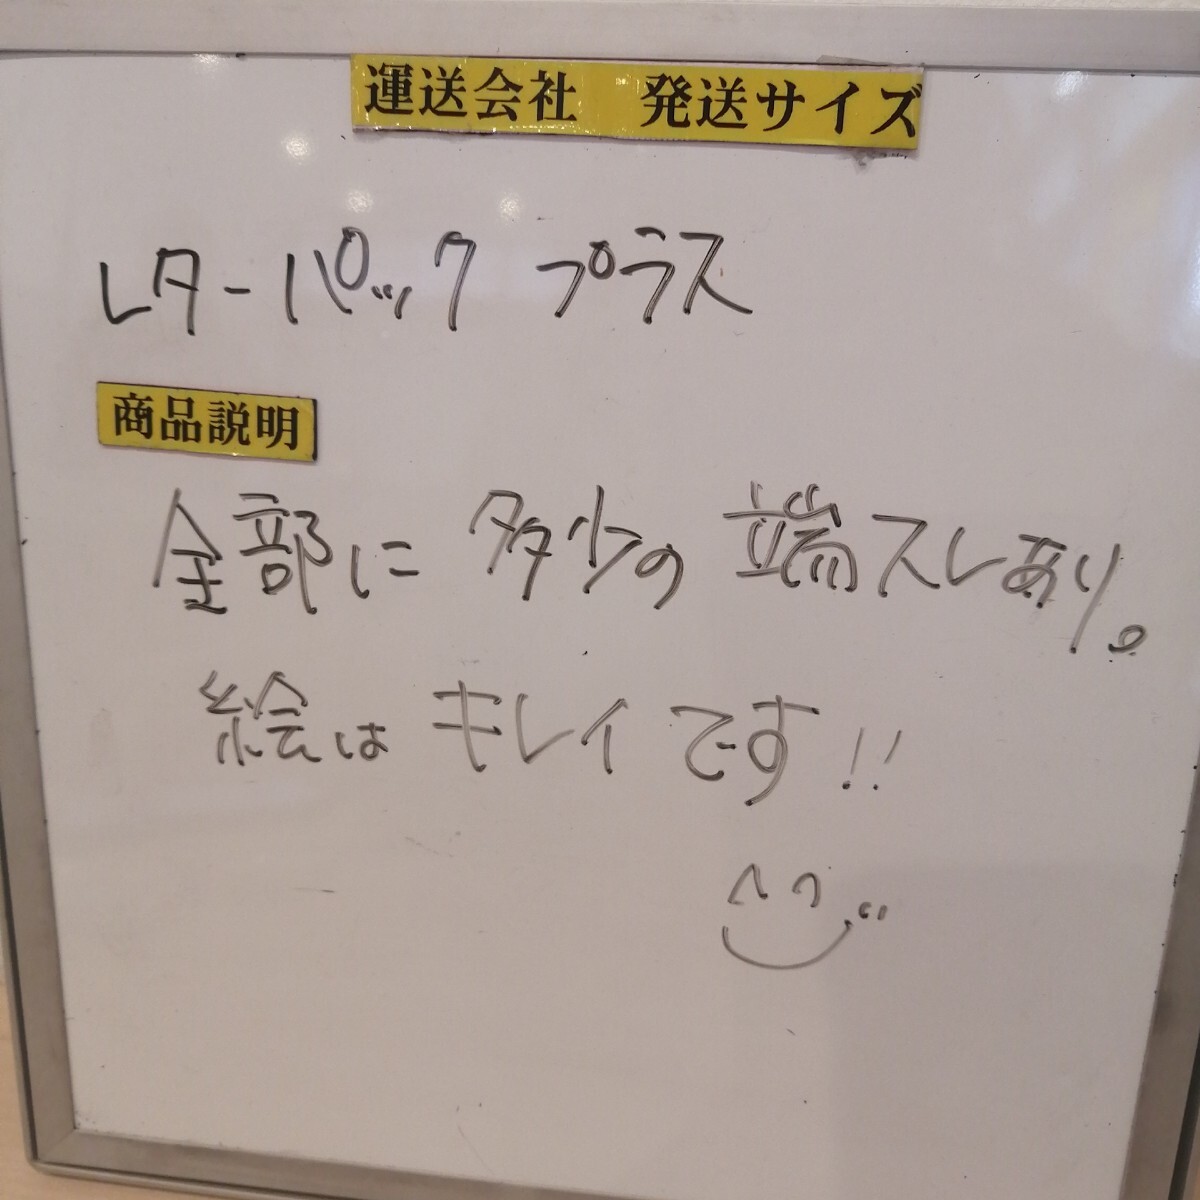 運送会社　発送サイズ
レターパック プラス
商品説明
全部に 多少の 端スレあり。
絵は キレイ です!!